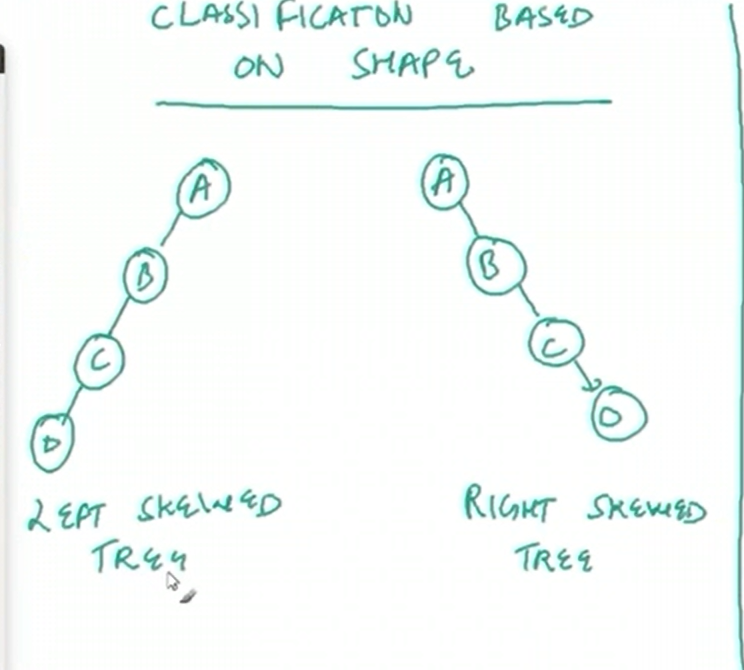 CLASSIFICATON BASED
ON SHAPE
A
B
C
D
LEFT SKEWED
TREE
A
B
C
D
RIGHT SKEWED
TREE